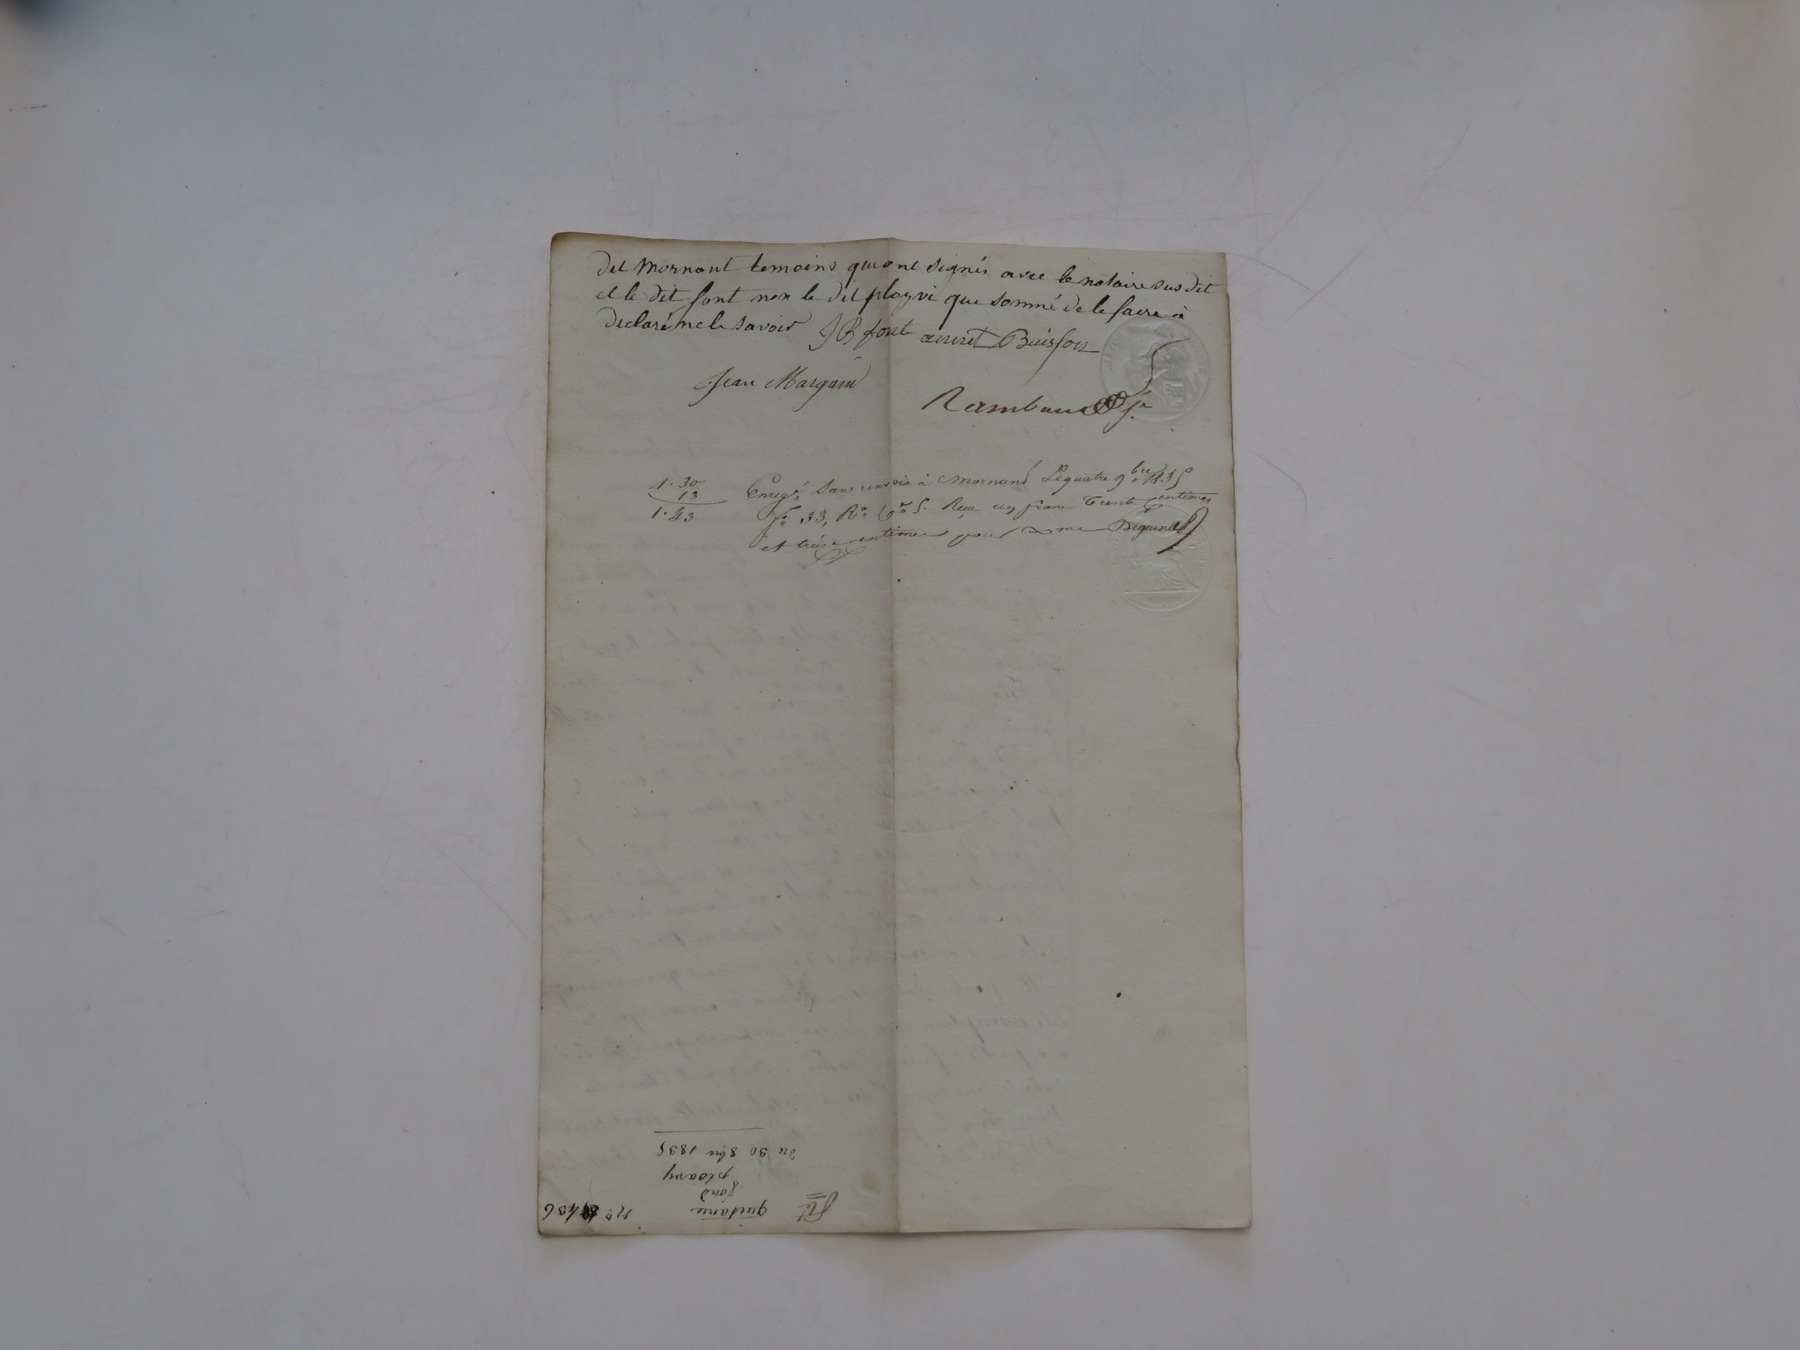 dit Mornant temoins qui ont signés avec le notaire sus dit
et le dit font non le dit ployvi que sommé de le faire à
declaré ne le savoir JB font Buisson
Jean Margain
Rambaud
1.30
13
1.43
Enreg.é sans renvoi à Mornant Le quatre 9.bre
f.o 33, R.o C.e 5. Reçu un franc Trente Centimes
et treize centimes pour
quitance
font
ployvy
du 30 8bre 1835